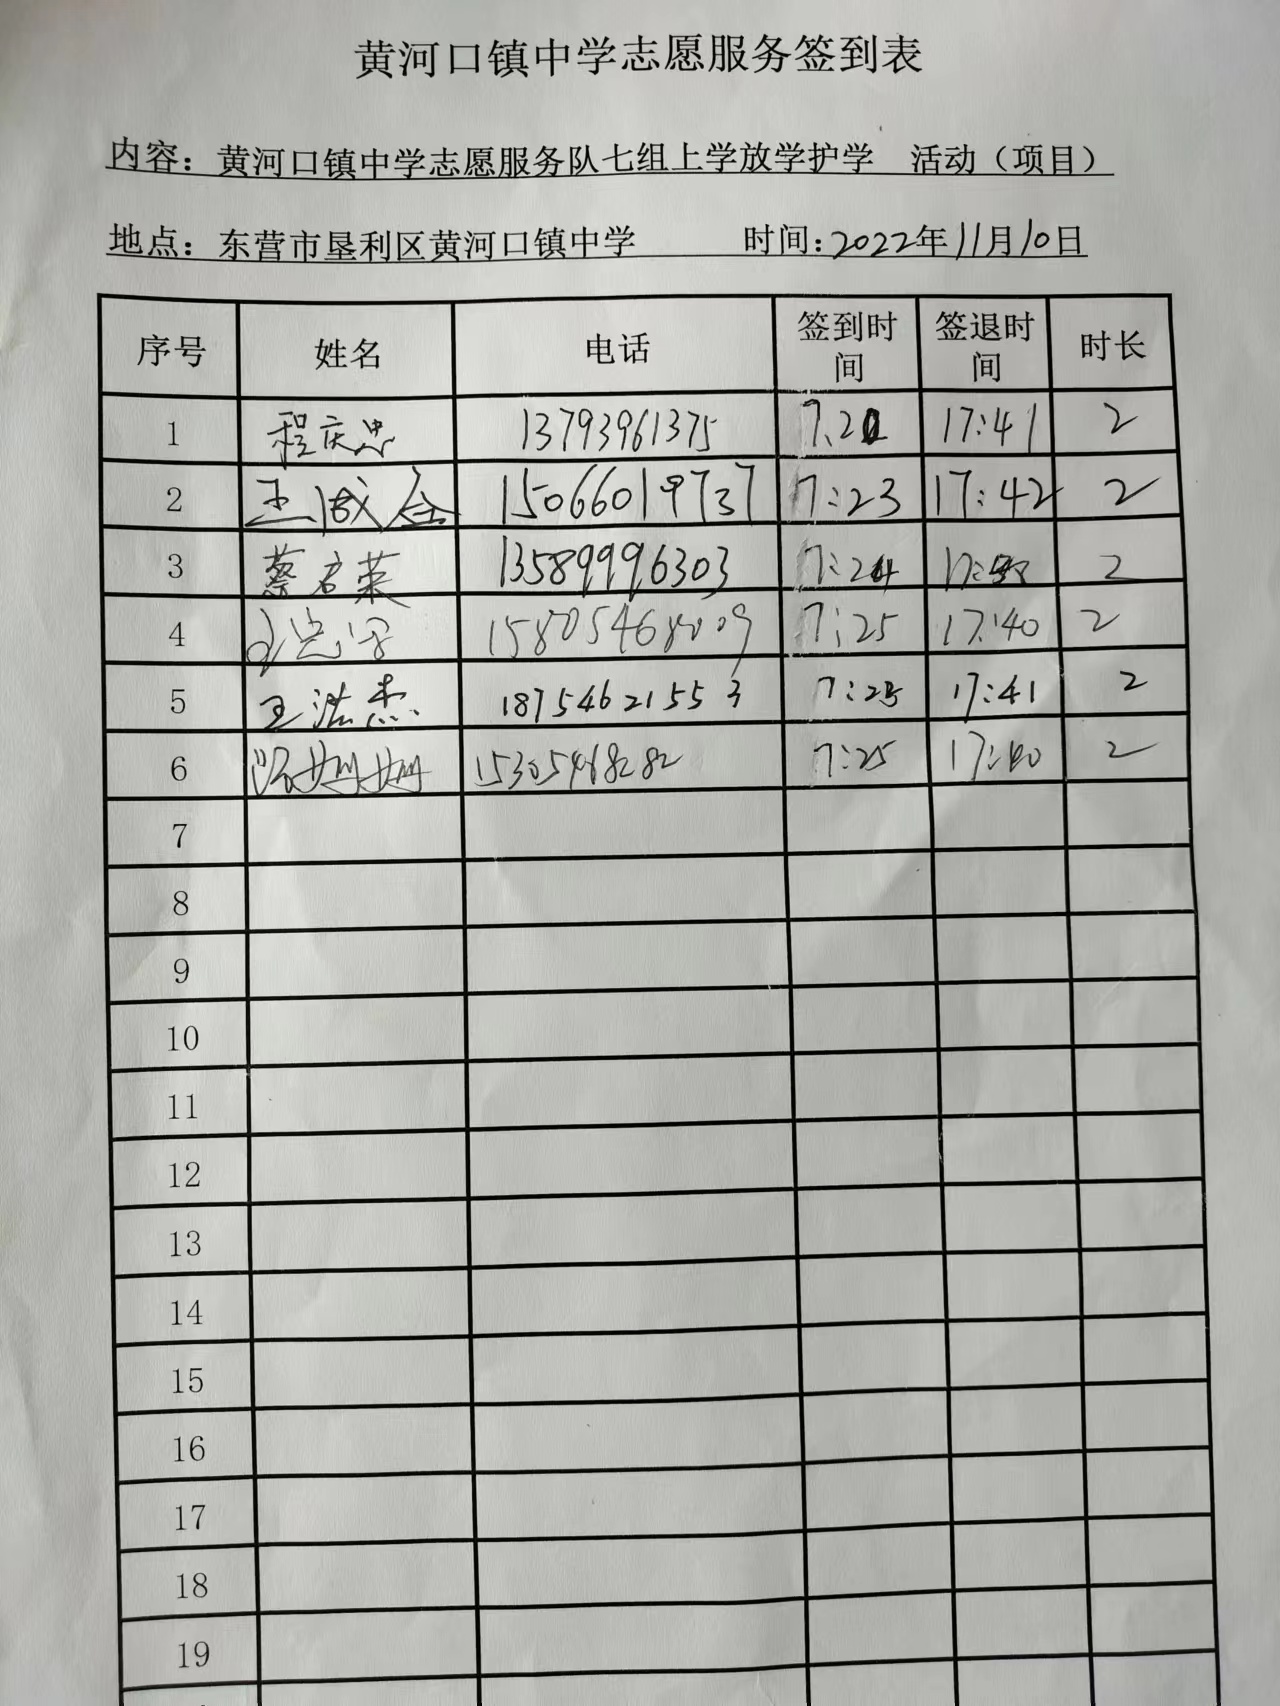 黄河口镇中学志愿服务签到表
内容：黄河口镇中学志愿服务队七组上学放学护学 活动（项目）
地点：东营市垦利区黄河口镇中学 时间：2022年11月10日
序号 姓名 电话 签到时间 签退时间 时长
1 程庆忠 13793961375 7.20 17:41 2
2 王成全 15066019737 7:23 17:42 2
3 蔡君荣 13589996303 7:24 2
4 15805468009 7:25 17:40 2
5 王浩杰 18754621553 7:25 17:41 2
6 路姗姗 15305468282 7:25 17:40 2
7
8
9
10
11
12
13
14
15
16
17
18
19